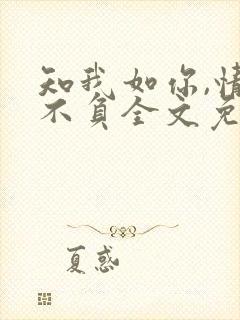 知我如你,情
不负全文免
夏惑